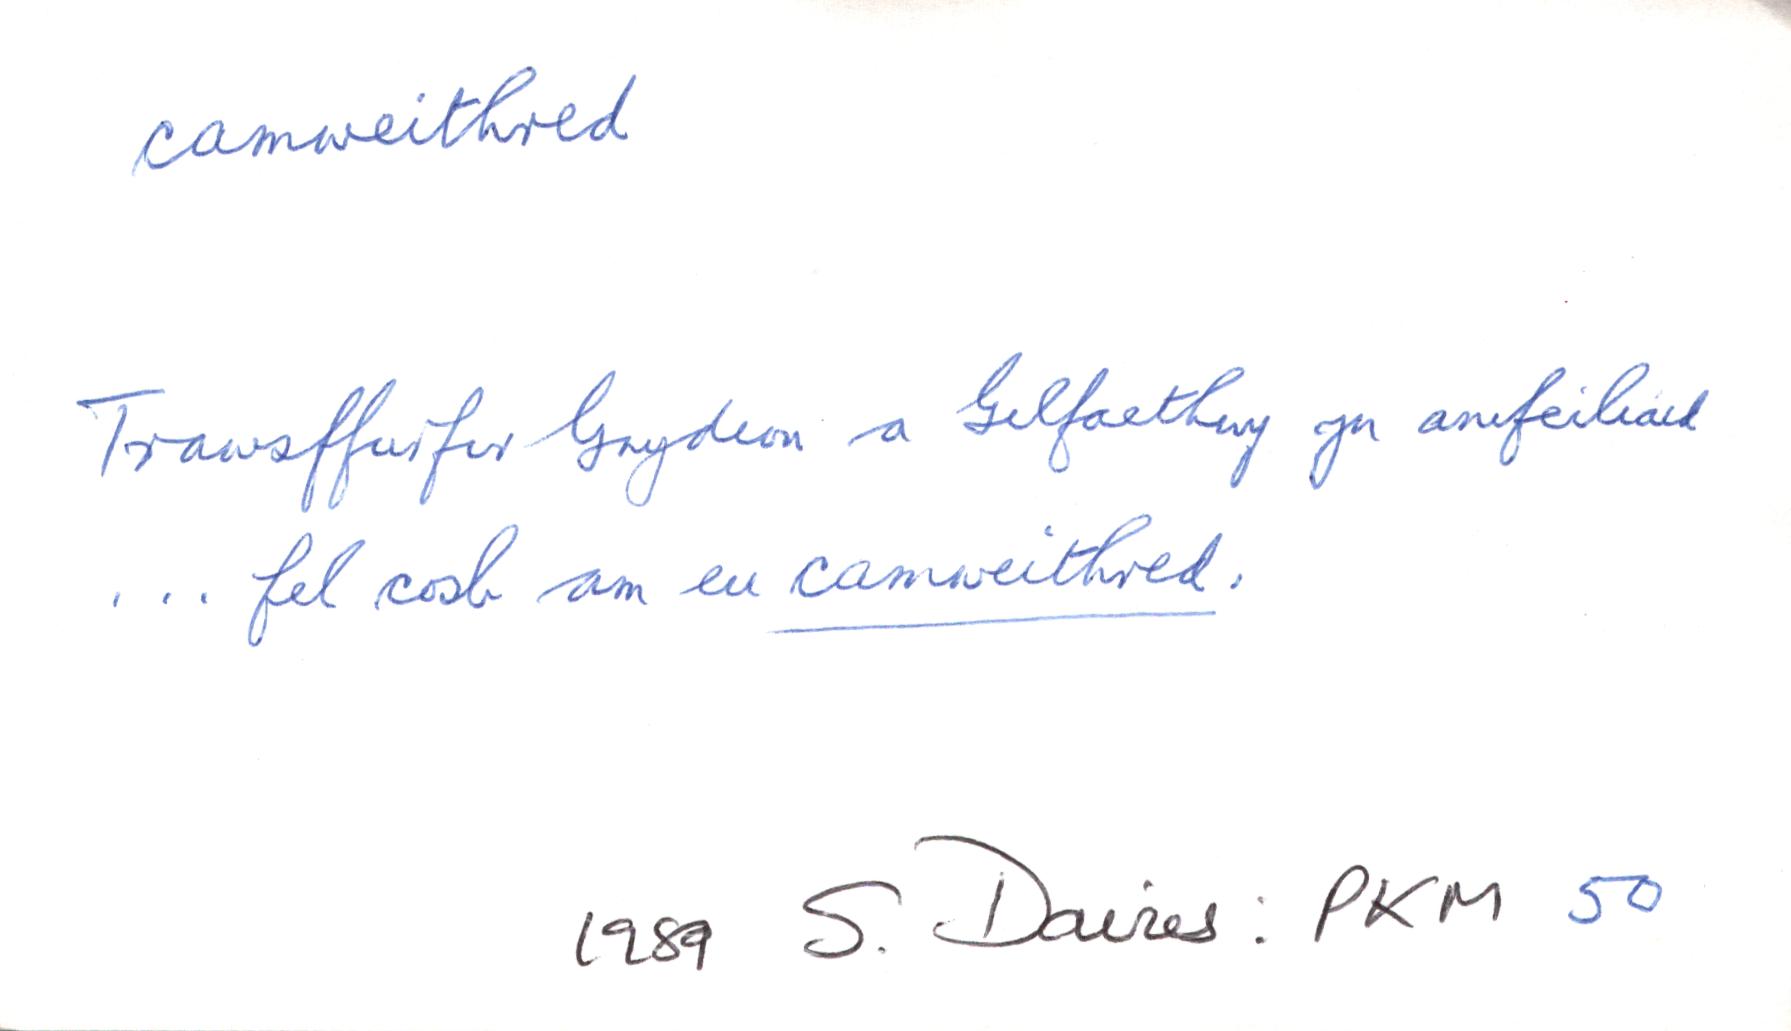 camweithred
Trawsffurfir Gwydion a Gilfaethwy yn anifeiliaid
... fel cosb am eu camweithred.
1989 S. Davies: PKM 50